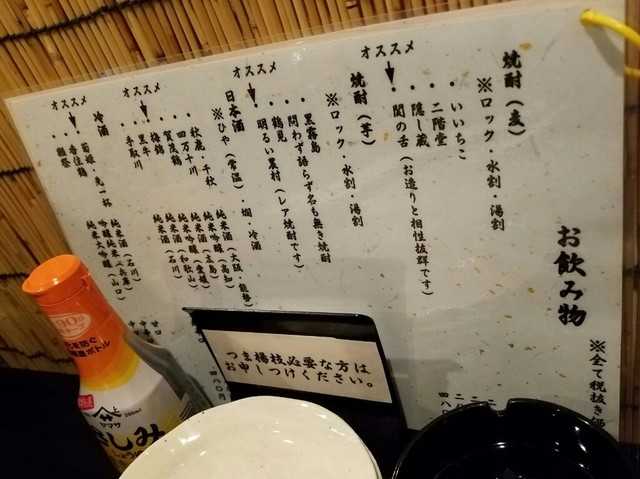 お飲み物
※全て税抜き価
焼酎（麦）
※ロック・水割・湯割
・いいちこ
・二階堂
・隠し蔵
オススメ
・閻の舌（お造りと相性抜群です）
焼酎（芋）
※ロック・水割・湯割
・黒霧島
・問わず語らず名も無き焼酎
・鶴見
オススメ
・明るい農村（レア焼酎です）
日本酒
※ひや（常温）・燗・冷酒
・秋鹿・千秋 純米酒（大阪 能勢）
・四万十川 純米吟醸（高知）
・賀茂鶴 純米酒（広島）
・梅錦 純米吟醸（愛媛）
オススメ
・黒牛 純米酒（和歌山）
・手取川 純米酒（石川）
冷酒
・菊姫・先一杯 純米酒（石川）
オススメ
・香住鶴 純米吟醸（兵庫）
・獺祭 純米大吟醸（山口）
四八〇円
つま楊枝必要な方は
お申しつけください。
ヤマサ
さしみ
しょうゆ
200ml